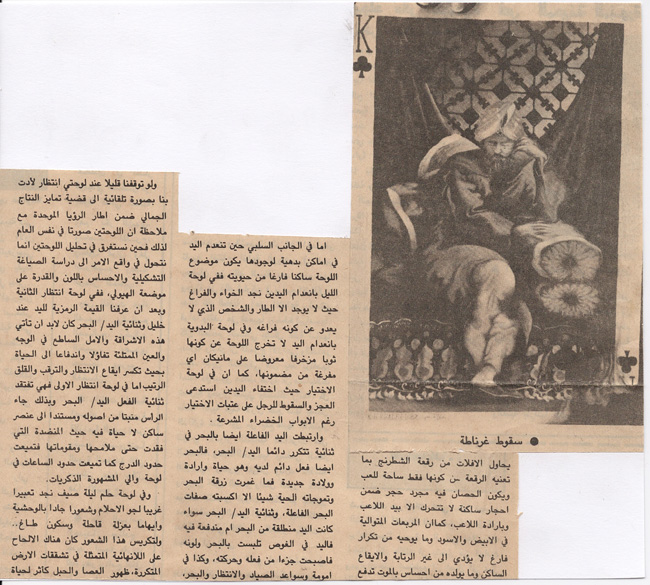 K
سقوط غرناطة
يحاول الافلات من رقعة الشطرنج بما
تعنيه الرقعة من كونها فقط ساحة للعب
ويكون الحصان فيه مجرد حجر ضمن
احجار ساكنة لا تتحرك الا بيد اللاعب
وبارادة اللاعب، كما ان المربعات المتوالية
في الابيض والاسود وما يوحيه من تكرار
فارغ لا يؤدي الى غير الرتابة والايقاع
الساكن وما يولده من احساس بالموت تدفع
اما في الجانب السلبي حين تنعدم اليد
في اماكن بدهية لوجودها يكون موضوع
اللوحة ساكنا فارغا من حيويته ففي لوحة
الليل بانعدام اليدين نجد الخواء والفراغ
حيث لا يوجد الا الطار والشخص الذي لا
يعدو عن كونه فراغه وفي لوحة البدوية
بانعدام اليد لا تخرج اللوحة عن كونها
ثوبا مزخرفا معروضا على مانيكان اي
مفرغة من مضمونها، كما ان في لوحة
الاختيار حيث اختفاء اليدين استدعى
العجز والسقوط للرجل على عتبات الاختيار
رغم الابواب الخضراء المشرعة.
وارتبطت اليد الفاعلة ايضا بالبحر في
ثنائية تتكرر دائما اليد/ البحر، فالبحر
ايضا فعل دائم لديه وهو حياة وارادة
وولادة جديدة فما غمرت زرقة البحر
وتموجاته الحية شيئا الا اكسبته صفات
البحر الفاعلة، وثنائية اليد/ البحر سواء
كانت اليد منطلقة من البحر ام مندفعة فيه
فاليد في الغوص تلبست بالبحر ولونه
فاصبحت جزءا من فعله وحركته، وكذا في
امومة وسواعد الصياد والانتظار والبحر،
ولو توقفنا قليلا عند لوحتي انتظار لأدت
بنا بصورة تلقائية الى قضية تمايز النتاج
الجمالي ضمن اطار الرؤيا الموحدة مع
ملاحظة ان اللوحتين صورتا في نفس العام
لذلك فحين نستغرق في تحليل اللوحتين انما
نتحول في واقع الامر الى دراسة الصياغة
التشكيلية والاحساس باللون والقدرة على
موضعة الهيولي، ففي لوحة انتظار الثانية
وبعد ان عرفنا القيمة الرمزية لليد عند
خليل وثنائية اليد/ البحر كان لابد ان تأتي
هذه الاشراقة والامل الساطع في الوجه
والعين الممتلئة تفاؤلا واندفاعا الى الحياة
بحيث تكسر ايقاع الانتظار والترقب والقلق
الرتيب اما في لوحة انتظار الاولى فهي تفتقد
ثنائية الفعل اليد/ البحر وبذلك جاء
الرأس منبتا من اصوله ومستندا الى عنصر
ساكن لا حياة فيه حيث المنضدة التي
فقدت حتى ملامحها ومقوماتها فتميعت
حدود الدرج كما تميعت حدود الساعات في
لوحة دالي المشهورة الذكريات.
وفي لوحة حلم ليلة صيف نجد تعبيرا
غريبا لجو الاحلام وشعورا جادا بالوحشية
وايهاما بعزلة قاحلة وسكون طاغ..
ولتكريس هذا الشعور كان هناك الالحاح
على اللانهائية المتمثلة في تشققات الارض
المتكررة، ظهور العصا والحبل كاثر لحياة